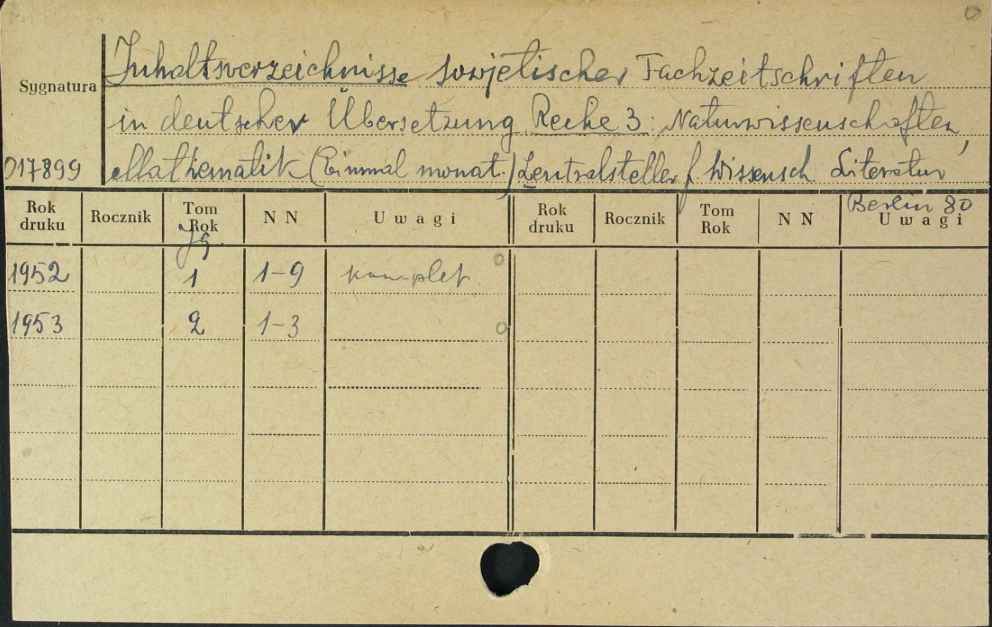 Inhaltsverzeichnisse sowjetischer Fachzeitschriften
Sygnatura
in deutscher Übersetzung Reihe 3: Naturwissenschaften,
017899 Mathematik (Einmal monat.) Zentralstelle f. Wissensch Literatur
Berlin 80
Rok druku Rocznik Tom Rok N N Uwagi Rok druku Rocznik Tom Rok N N Uwagi
Jg
1952 1 1-9 komplet
1953 2 1-3